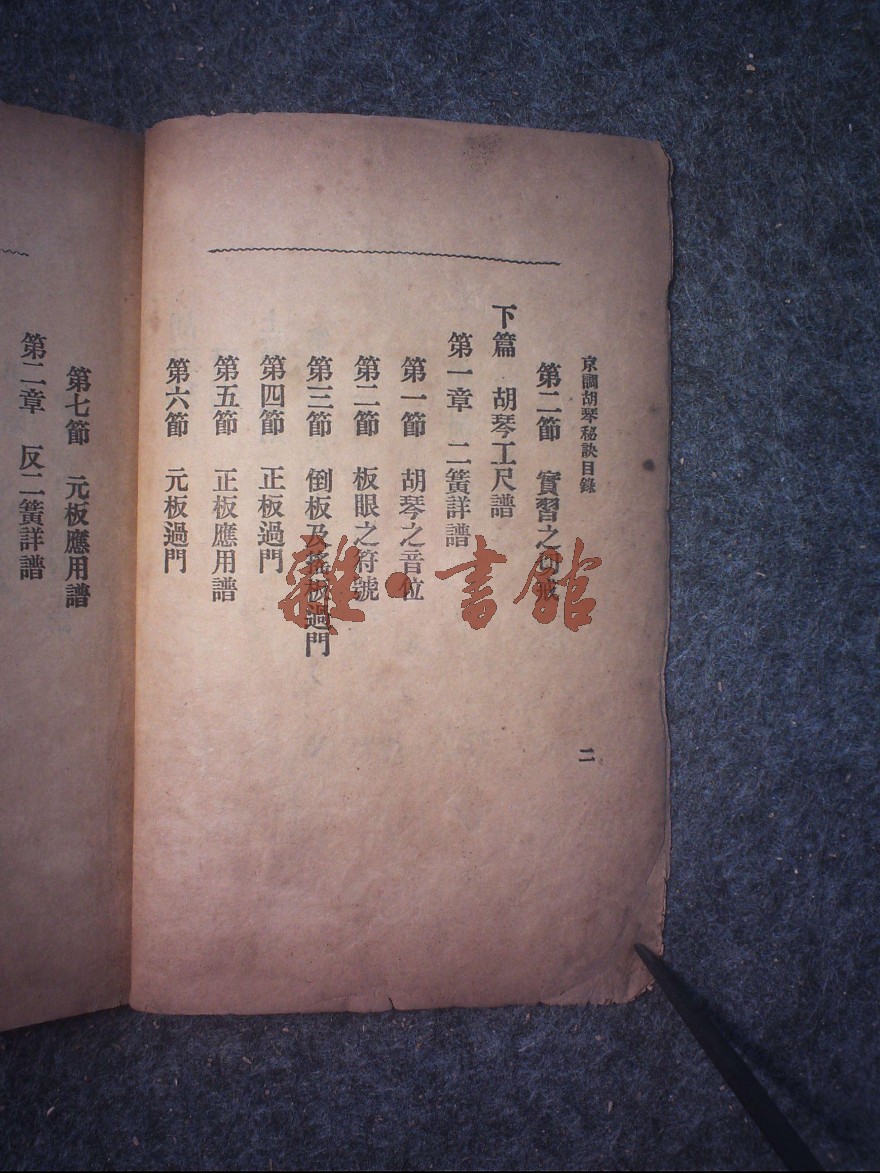 京調胡琴秘訣目錄
第二節　實習之
下篇　胡琴工尺譜
第一章　二簧詳譜
第一節　胡琴之音位
第二節　板眼之符號
第三節　倒板及搖板過門
第四節　正板過門
第五節　正板應用譜
第六節　元板過門
二
第七節　元板應用譜
第二章　反二簧詳譜
雜·書館